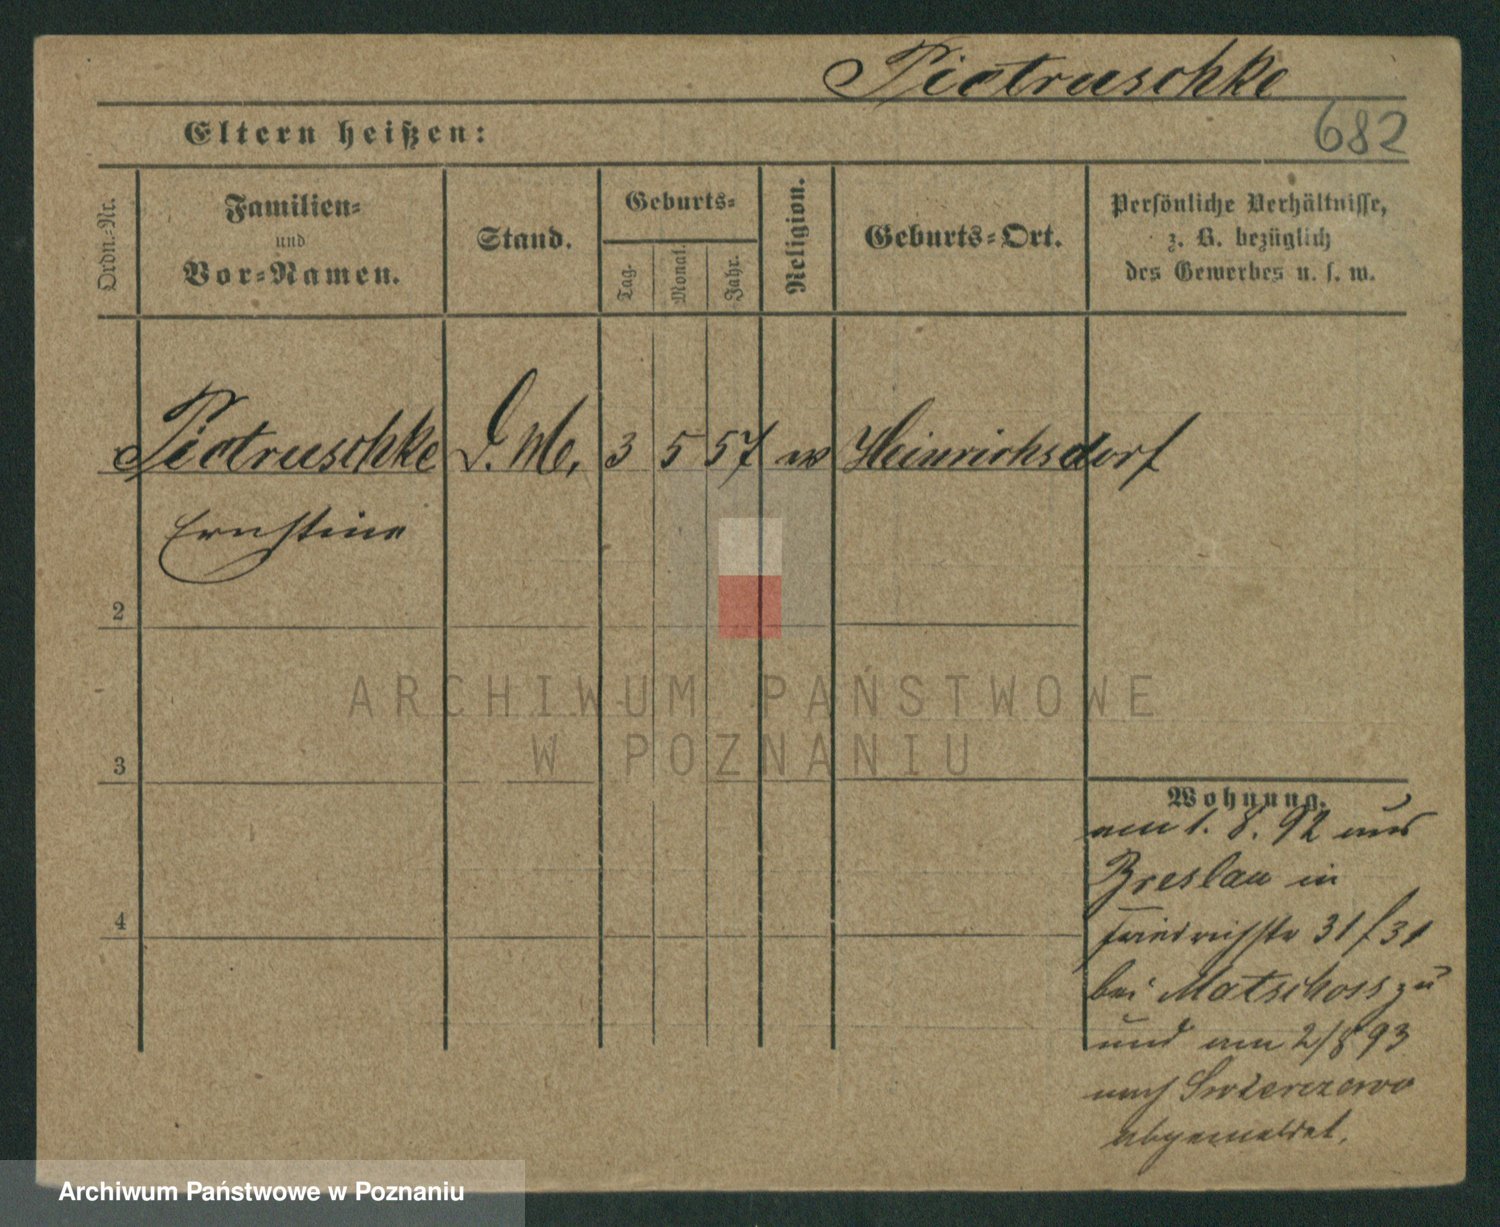 Pietruschke
Eltern heißen:
682
Ordn.-Nr.
Familien-
und
Vor-Namen.
Stand.
Geburts-
Tag.
Monat.
Jahr.
Religion.
Geburts-Ort.
Persönliche Verhältnisse,
z. B. bezüglich
des Gewerbes u. s. w.
Pietruschke D. M. 3 5 57 ev Heinrichsdorf
Ernstine
2
3
4
Wohnung.
am 1. 8. 92 aus
Breslau in
Friedrichstr 31 / 31
bei Matschoss zu
und am 2/8 93
nach
abgemeldet.
ARCHIWUM PAŃSTWOWE
W POZNANIU
Archiwum Państwowe w Poznaniu